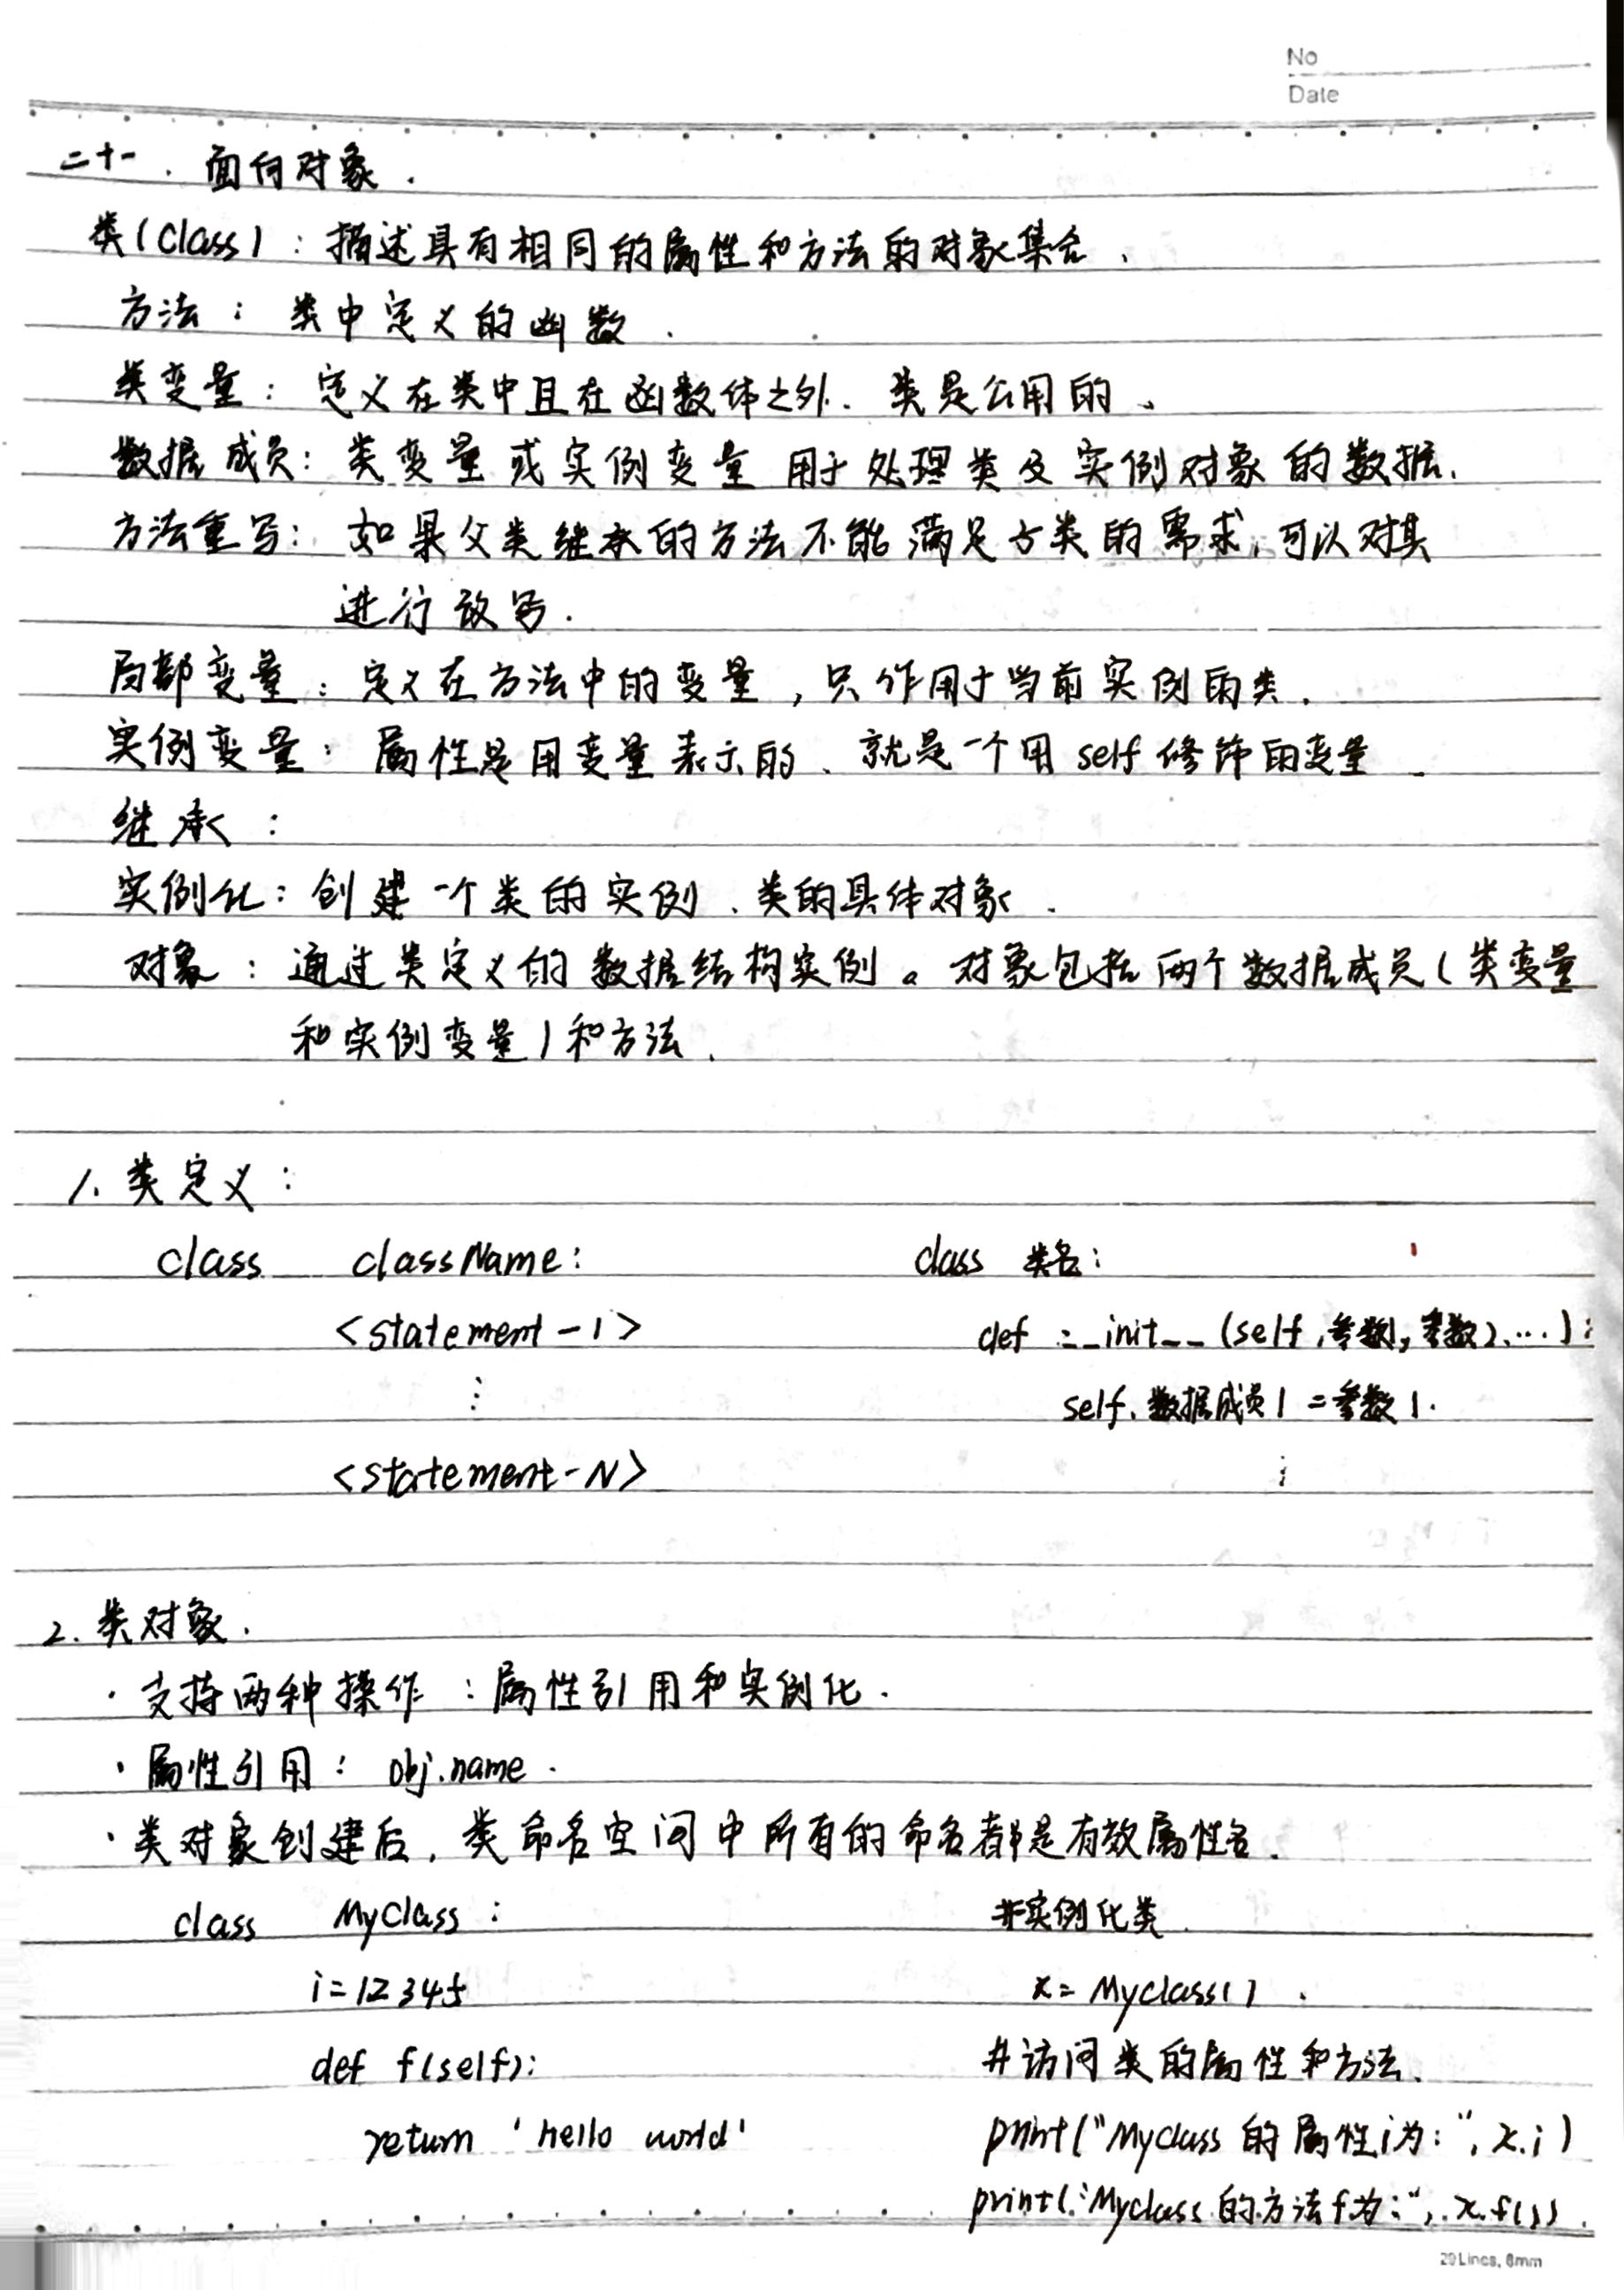 No
Date
二十一. 面向对象.
类(Class): 描述具有相同的属性和方法的对象集合.
方法: 类中定义的函数.
类变量: 定义在类中且在函数体之外. 类是公用的。
数据成员: 类变量或实例变量 用于处理类及实例对象的数据.
方法重写: 如果父类继承的方法不能满足子类的需求, 可以对其
进行改写.
局部变量: 定义在方法中的变量, 只作用于当前实例的类.
实例变量: 属性是用变量表示的、就是一个用 self 修饰的变量
继承:
实例化: 创建一个类的实例、类的具体对象.
对象: 通过类定义的数据结构实例。对象包括两个数据成员(类变量
和实例变量)和方法.
1. 类定义:
class className:
<statement-1>
⋮
<statement-N>
class 类名:
def __init__(self, 参数1, 参数2, …):
self.数据成员1 = 参数1.
⋮
2. 类对象.
· 支持两种操作: 属性引用和实例化.
· 属性引用: obj.name.
· 类对象创建后, 类命名空间中所有的命名都是有效属性名.
class MyClass:
i=12345
def f(self):
return 'hello world'
#实例化类.
x= Myclass().
#访问类的属性和方法.
print("Myclass 的属性i为:", x.i)
print("Myclass 的方法f为:", x.f()).
29Lines, 8mm